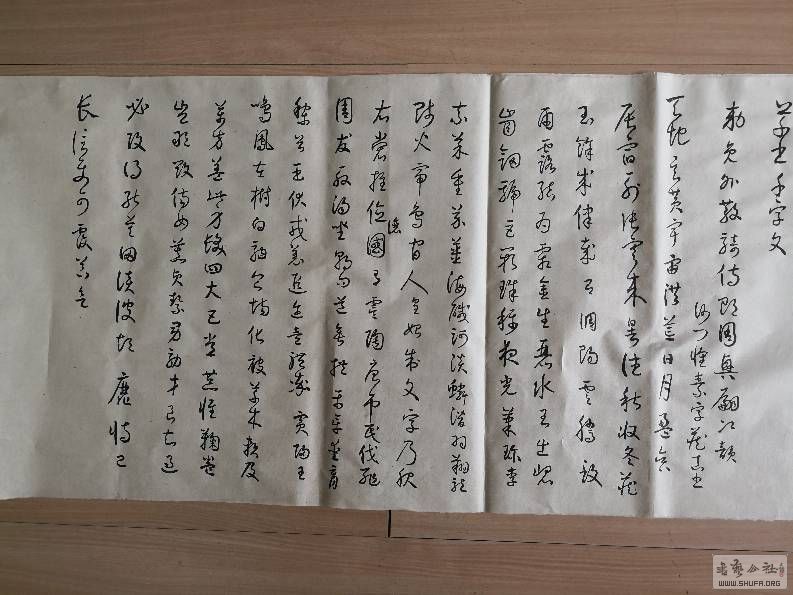 草书千字文
勅员外散骑侍郎周興嗣次韵
沙门懷素字藏真书
天地玄黄宇宙洪荒日月盈昃
辰宿列张寒来暑往秋收冬藏
闰餘成律歲吕调陽雲騰致
雨露结为霜金生麗水玉出崑
崗劍號巨闕珠稱夜光菓珍李
柰菜重芥薑海鹹河淡鱗潜羽翔龍
師火帝鸟官人皇始制文字乃服
衣裳推位讓國有虞陶唐吊民伐罪
周发殷汤坐朝问道垂拱平章爱育
黎首臣伏戎羌遐迩壹體率賓歸王
鳴鳳在樹白駒食場化被草木赖及
萬方盖此身髮四大五常恭惟鞠养
豈敢毁伤女慕貞絜男效才良知过
必改得能莫罔谈彼短靡恃己
长信使可覆器欲
书藝公社
WWW.SHUFA.ORG